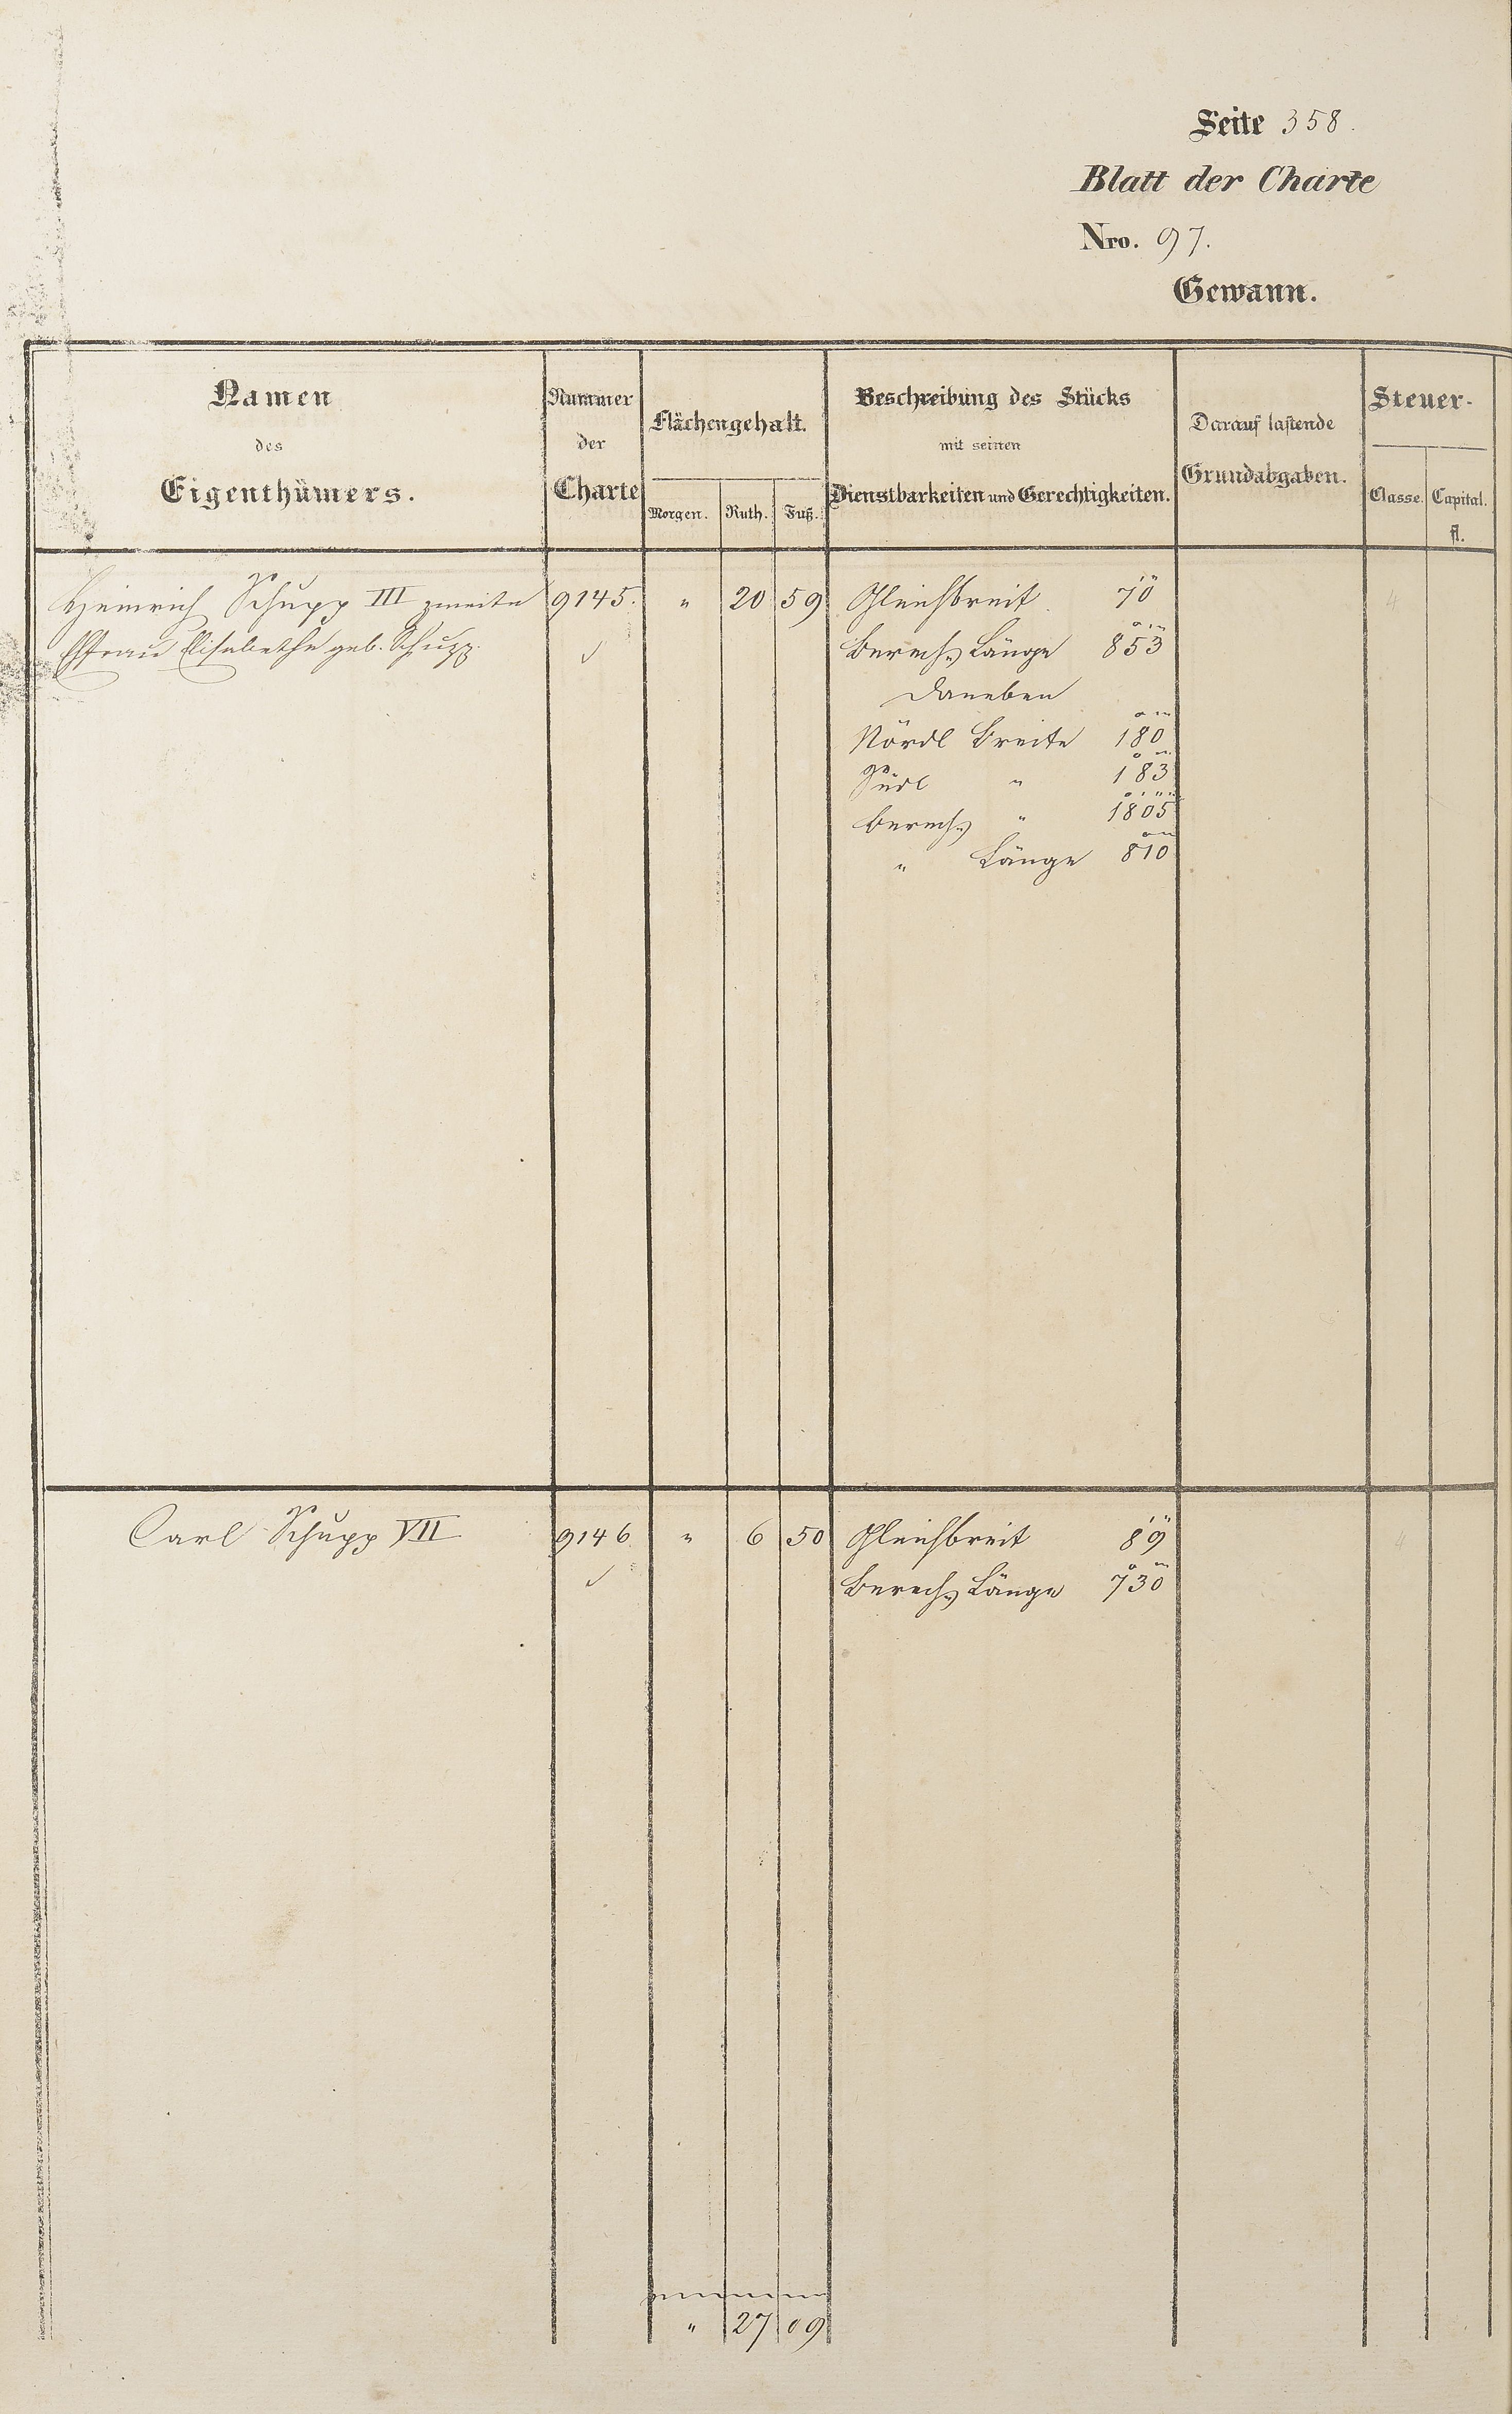 Seite 358.
Blatt der Charte
Nro. 97.
Gewann.
Namen des Eigenthümers.
Nummer der Charte
Flächengehalt.
Morgen. Ruth. Fuß.
Beschreibung des Stücks mit seinen Dienstbarkeiten und Gerechtigkeiten.
Darauf lastende Grundabgaben.
Steuer-
Classe. Capital.
fl.
Heinrich Schupp III zweite 9145. " 20 59 Gleichbreit 7' 0"
Ehfrau Elisabethe geb. Schupp. ✓ Berech. Länge 8° 5' 3"
Daneben
Nördl Breite 1° 8' 0"
Südl " 1° 8' 3"
Berech. " 1° 8' 0" 5'''
" Länge 8° 1' 0"
4
Carl Schupp VII 9146. " 6 50 Gleichbreit 8' 9"
✓ Berech. Länge 7° 3' 0"
4
" 27 09